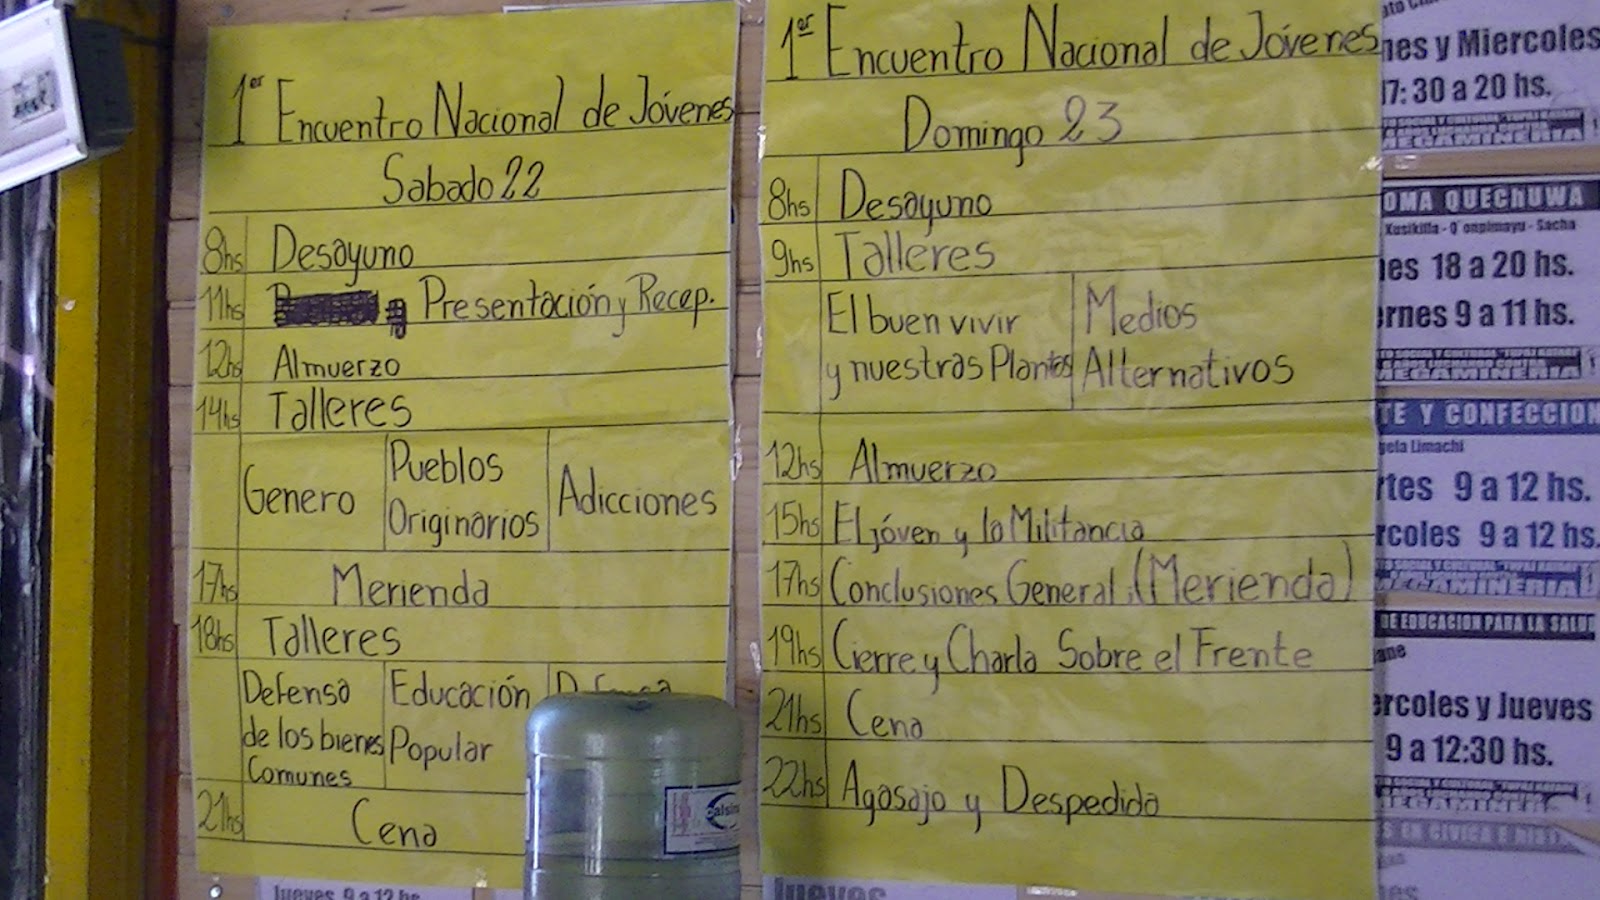 1er Encuentro Nacional de Jóvenes
Sabado 22
8hs Desayuno
11hs Presentación y Recep.
12hs Almuerzo
14hs Talleres
Genero
Pueblos
Originarios
Adicciones
17hs Merienda
18hs Talleres
Defensa
de los bienes
Comunes
Educación
Popular
21hs Cena
1er Encuentro Nacional de Jóvenes
Domingo 23
8hs Desayuno
9hs Talleres
El buen vivir
y nuestras Plantas
Medios
Alternativos
12hs Almuerzo
15hs El jóven y la Militancia
17hs Conclusiones General. (Merienda)
19hs Cierre y Charla Sobre el Frente
21hs Cena
22hs Agasajo y Despedida
nes y Miercoles
17:30 a 20 hs.
MEGAMINERIA
OMA QUECHUWA
Sacha
es 18 a 20 hs.
rnes 9 a 11 hs.
MEGAMINERIA
TE Y CONFECCION
gela Limachi
rtes 9 a 12 hs.
rcoles 9 a 12 hs.
MEGAMINERIA
DE EDUCACION PARA LA SALUD
ercoles y Jueves
9 a 12:30 hs.
MEGAMINER
Jueves 9 a 12 hs
Jueves